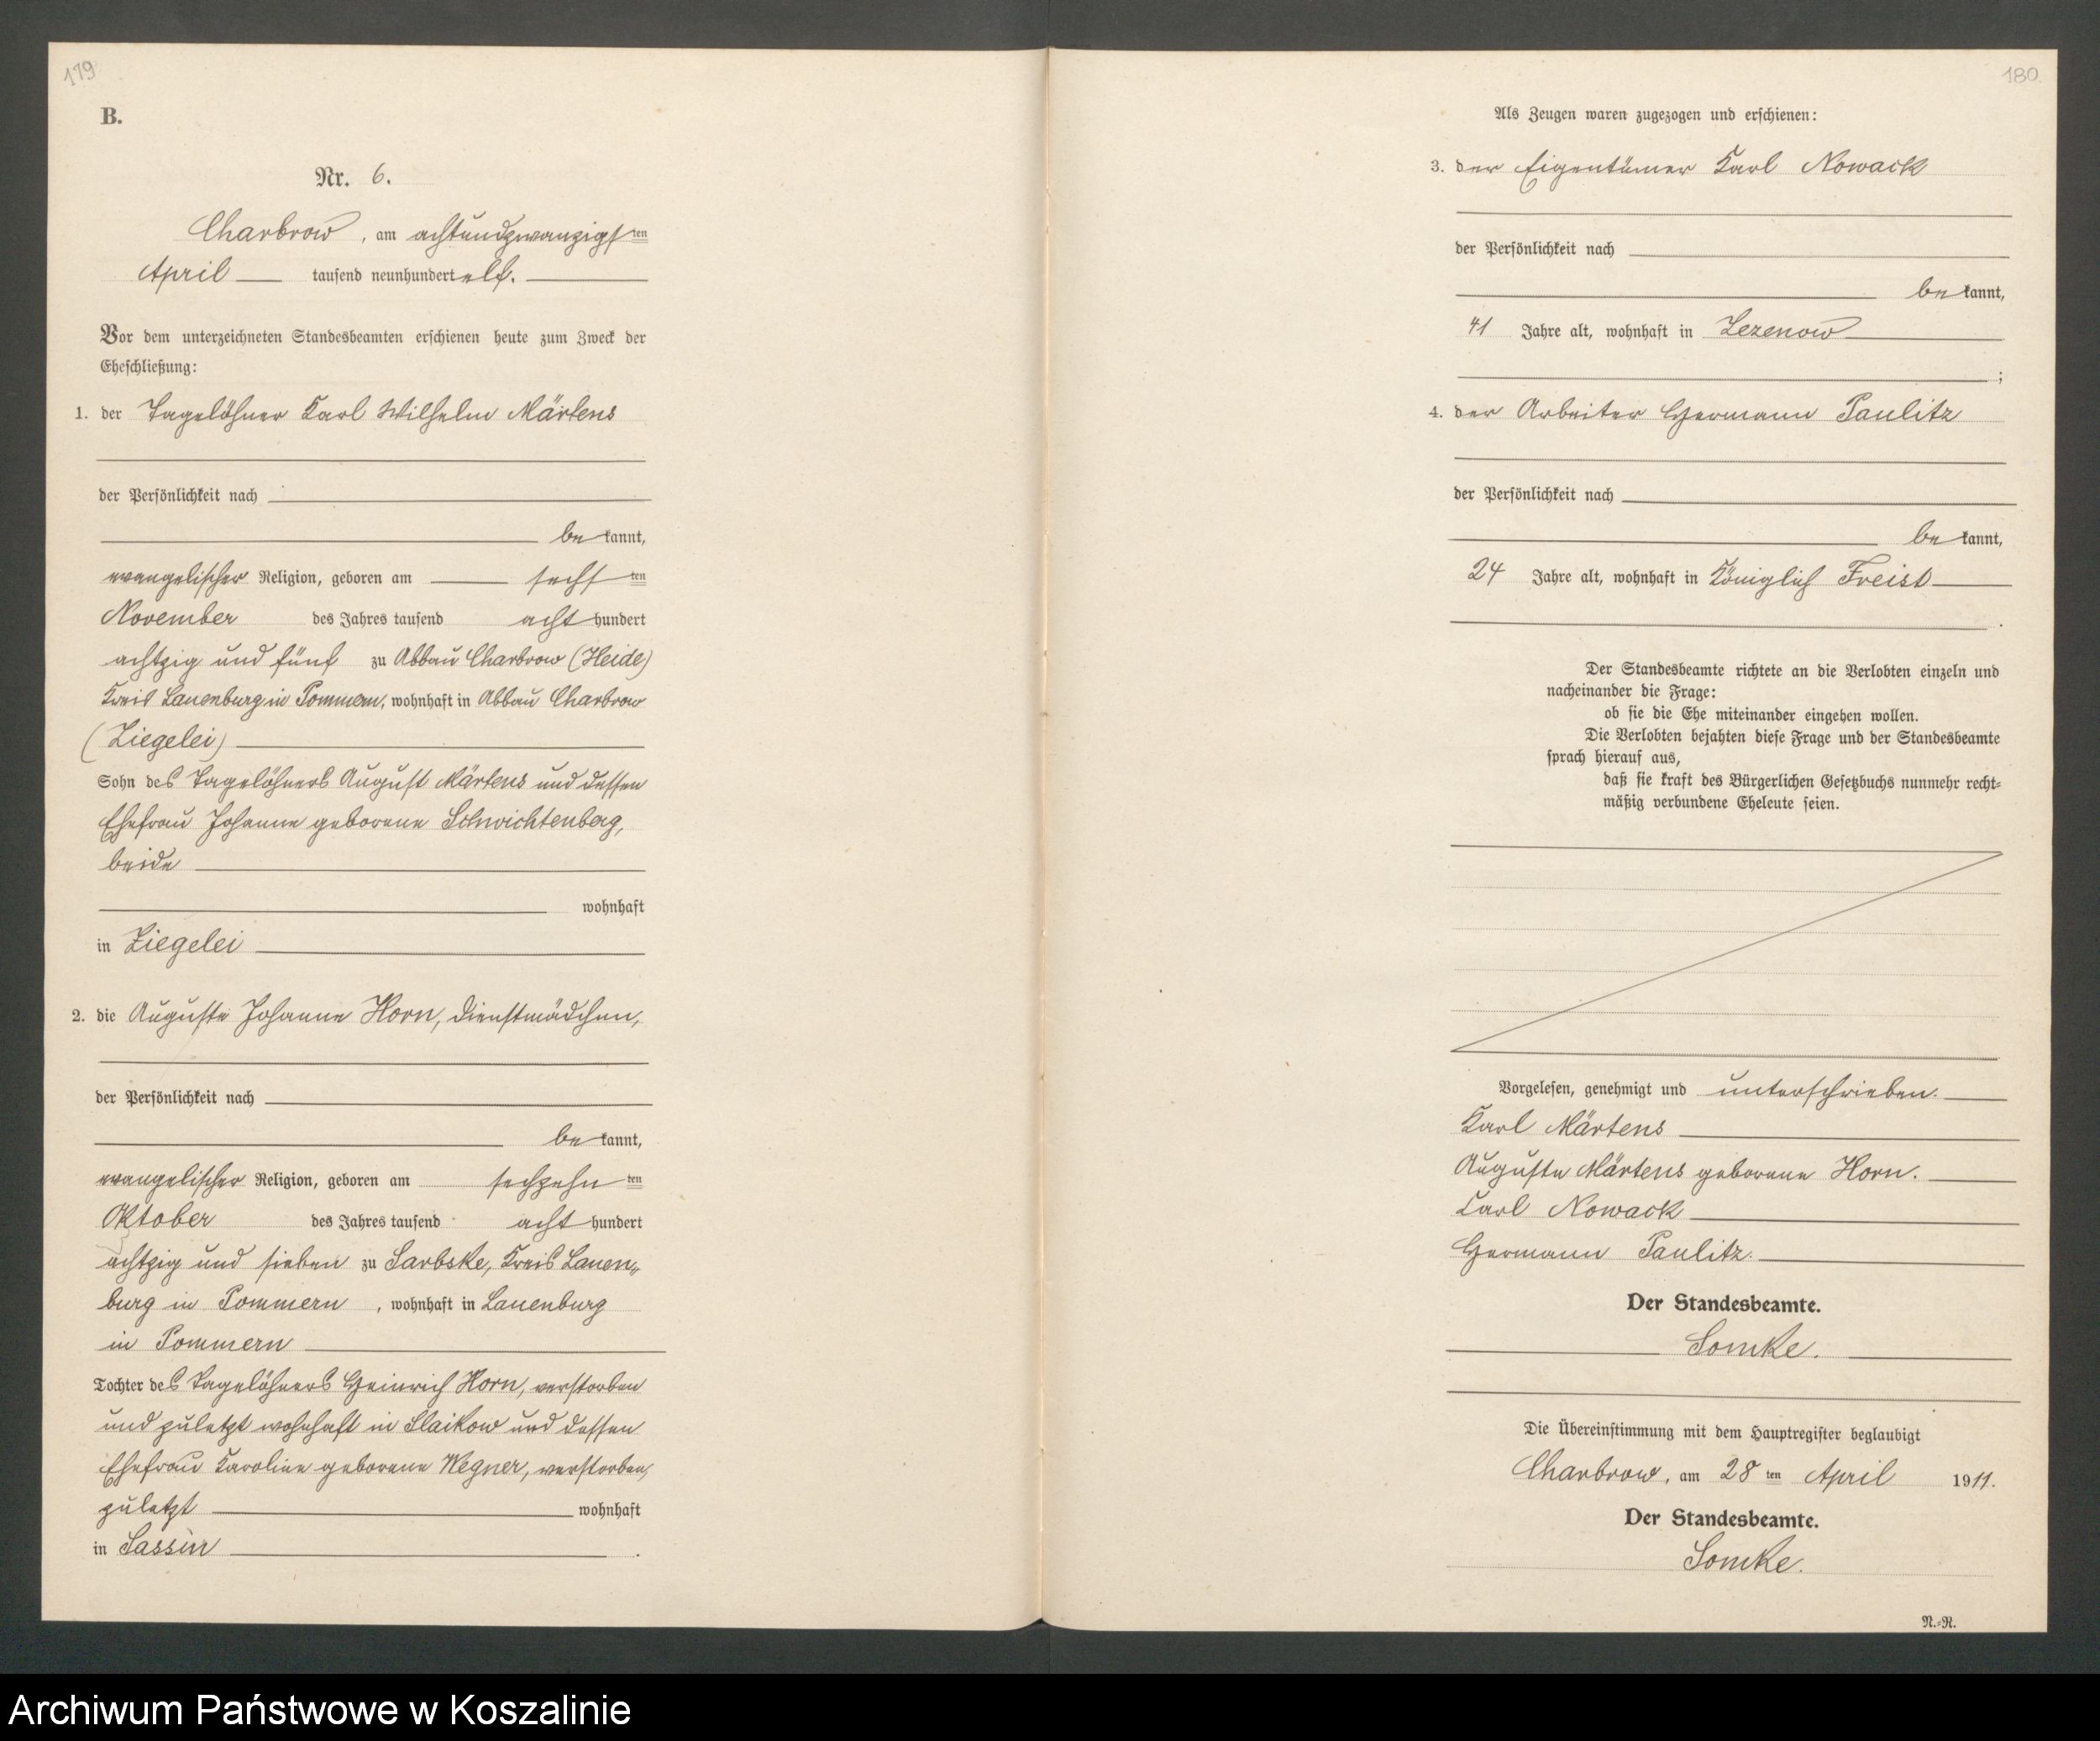 179
B.
Nr. 6.
Charbrow, am achtundzwanzigsten
April tausend neunhundert elf.
Vor dem unterzeichneten Standesbeamten erschienen heute zum Zweck der
Eheschließung:
1. der Tagelöhner Karl Wilhelm Märtens
der Persönlichkeit nach
bekannt,
evangelischer Religion, geboren am sechsten
November des Jahres tausend achthundert
achtzig und fünf zu Abbau Charbrow (Heide)
Kreis Lauenburg in Pommern, wohnhaft in Abbau Charbrow
(Ziegelei)
Sohn des Tagelöhners August Märtens und dessen
Ehefrau Johanne geborene Schwichtenberg,
beide
wohnhaft
in Ziegelei
2. die Auguste Johanne Horn, Dienstmädchen,
der Persönlichkeit nach
bekannt,
evangelischer Religion, geboren am sechzehnten
Oktober des Jahres tausend achthundert
achtzig und sieben zu Sarbske, Kreis Lauen„
burg in Pommern, wohnhaft in Lauenburg
in Pommern
Tochter des Tagelöhners Heinrich Horn, verstorben
und zuletzt wohnhaft in Slaikow und dessen
Ehefrau Karoline geborene Wegner, verstorben,
zuletzt wohnhaft
in Sassin.
180.
Als Zeugen waren zugezogen und erschienen:
3. der Eigentümer Karl Nowack
der Persönlichkeit nach
bekannt,
41 Jahre alt, wohnhaft in Zezenow
;
4. der Arbeiter Hermann Paulitz
der Persönlichkeit nach
bekannt,
24 Jahre alt, wohnhaft in Königlich Freist
.
Der Standesbeamte richtete an die Verlobten einzeln und
nacheinander die Frage:
ob sie die Ehe miteinander eingehen wollen.
Die Verlobten bejahten diese Frage und der Standesbeamte
sprach hierauf aus,
daß sie kraft des Bürgerlichen Gesetzbuchs nunmehr recht-
mäßig verbundene Eheleute seien.
Vorgelesen, genehmigt und unterschrieben.
Karl Märtens
Auguste Märtens geborene Horn.
Carl Nowack
Hermann Paulitz.
Der Standesbeamte.
Somke.
Die Übereinstimmung mit dem Hauptregister beglaubigt
Charbrow, am 28ten April 1911.
Der Standesbeamte.
Somke.
N.-R.
Archiwum Państwowe w Koszalinie